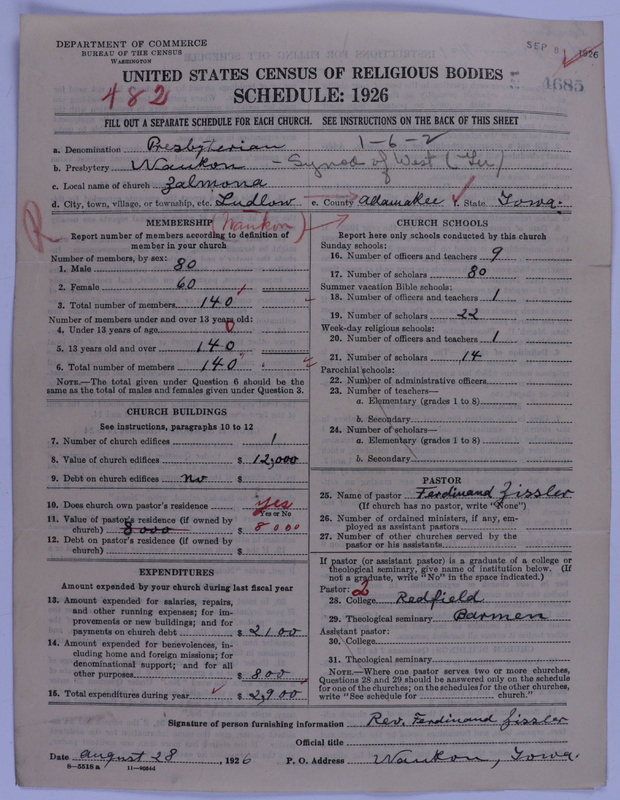 DEPARTMENT OF COMMERCE
BUREAU OF THE CENSUS
WASHINGTON
SEP 8 1926
4685
UNITED STATES CENSUS OF RELIGIOUS BODIES
482
SCHEDULE: 1926
FILL OUT A SEPARATE SCHEDULE FOR EACH CHURCH. SEE INSTRUCTIONS ON THE BACK OF THIS SHEET
1-6-2
a. Denomination Presbyterian
b. Presbytery Waukon - Synod of West (Ger)
c. Local name of church Zalmona
d. City, town, village, or township, etc. Ludlow e. County Adamakee f. State Iowa.
R
(Waukon)
MEMBERSHIP
Report number of members according to definition of
member in your church
Number of members, by sex:
1. Male 80
2. Female 60
3. Total number of members 140
Number of members under and over 13 years old:
4. Under 13 years of age 0
5. 13 years old and over 140
6. Total number of members 140
NOTE.—The total given under Question 6 should be the
same as the total of males and females given under Question 3.
CHURCH BUILDINGS
See instructions, paragraphs 10 to 12
7. Number of church edifices 1
8. Value of church edifices $ 12,000
9. Debt on church edifices no $
10. Does church own pastor's residence yes
Yes or No
11. Value of pastor's residence (if owned by
church) 8000 $ 8000
12. Debt on pastor's residence (if owned by
church) $
EXPENDITURES
Amount expended by your church during last fiscal year
13. Amount expended for salaries, repairs,
and other running expenses; for im-
provements or new buildings; and for
payments on church debt $ 2100
14. Amount expended for benevolences, in-
cluding home and foreign missions; for
denominational support; and for all
other purposes $ 800
15. Total expenditures during year $ 2900
CHURCH SCHOOLS
Report here only schools conducted by this church
Sunday schools:
16. Number of officers and teachers 9
17. Number of scholars 80
Summer vacation Bible schools:
18. Number of officers and teachers 1
19. Number of scholars 22
Week-day religious schools:
20. Number of officers and teachers 1
21. Number of scholars 14
Parochial schools:
22. Number of administrative officers
23. Number of teachers—
a. Elementary (grades 1 to 8)
b. Secondary
24. Number of scholars—
a. Elementary (grades 1 to 8)
b. Secondary
PASTOR
25. Name of pastor Ferdinand Zissler
(If church has no pastor, write "None")
26. Number of ordained ministers, if any, em-
ployed as assistant pastors
27. Number of other churches served by the
pastor or his assistants
If pastor (or assistant pastor) is a graduate of a college or
theological seminary, give name of institution below. (If
not a graduate, write "No" in the space indicated.)
Pastor: 2
28. College Redfield
29. Theological seminary Barmen
Assistant pastor:
30. College
31. Theological seminary
NOTE.—Where one pastor serves two or more churches,
Questions 28 and 29 should be answered only on the schedule
for one of the churches; on the schedules for the other churches,
write "See schedule for church."
Signature of person furnishing information Rev. Ferdinand Zissler
Official title
Date August 28, 1926 P. O. Address Waukon, Iowa.
8—5518a